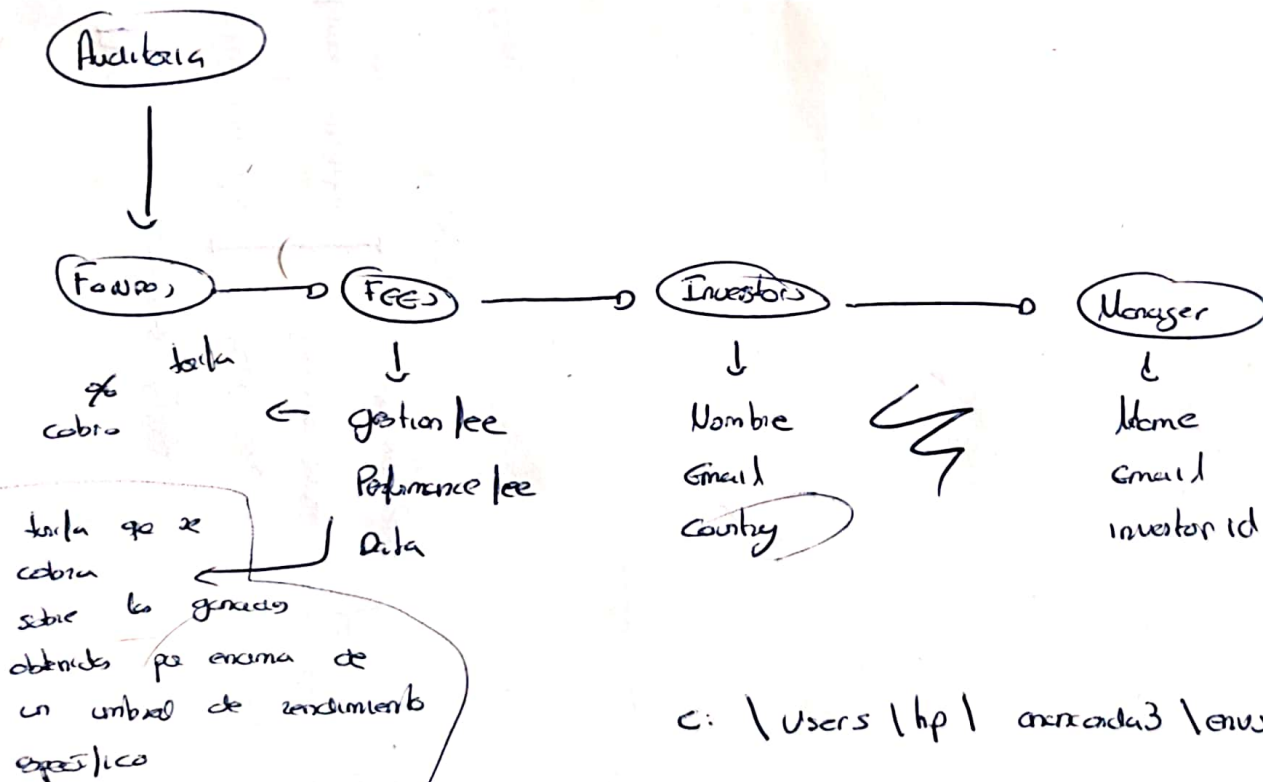 Auditoria
Fondos
FEES
Investors
Manager
tarifa
%
cobro
gestion fee
Performance fee
Data
Nombre
Email
Country
Name
Email
investor id
tarifa que se
cobra
sobre las
obtenidas por encima de
un umbral de rendimiento
específico
C:\Users\hp\anaconda3\envs